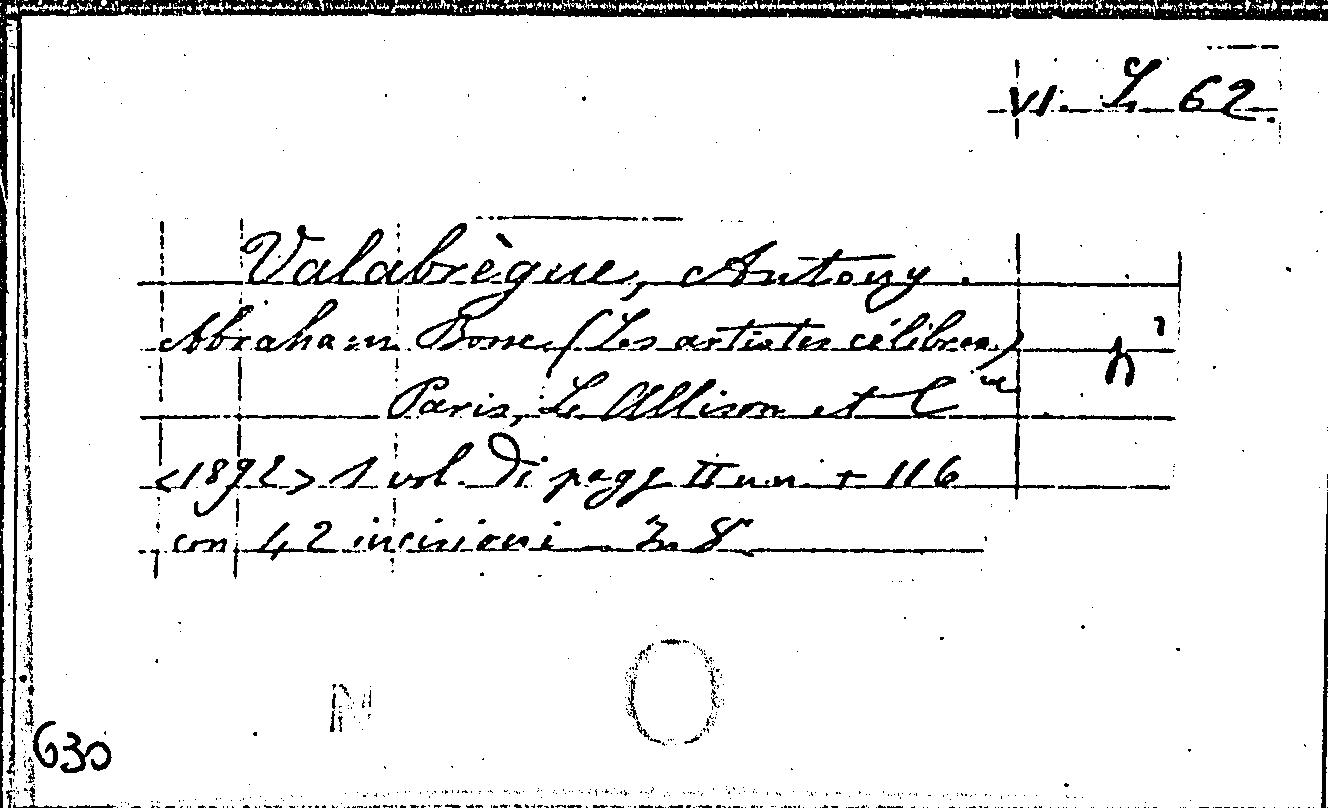 VI. L. 62.
Valabrègue, Antony.
Abraham Bosse (Les artistes célèbres)
Paris, L. Allison et Cie
<1892> 1 vol. di pagg II nn. + 116
con 42 incisioni 8°
N
630